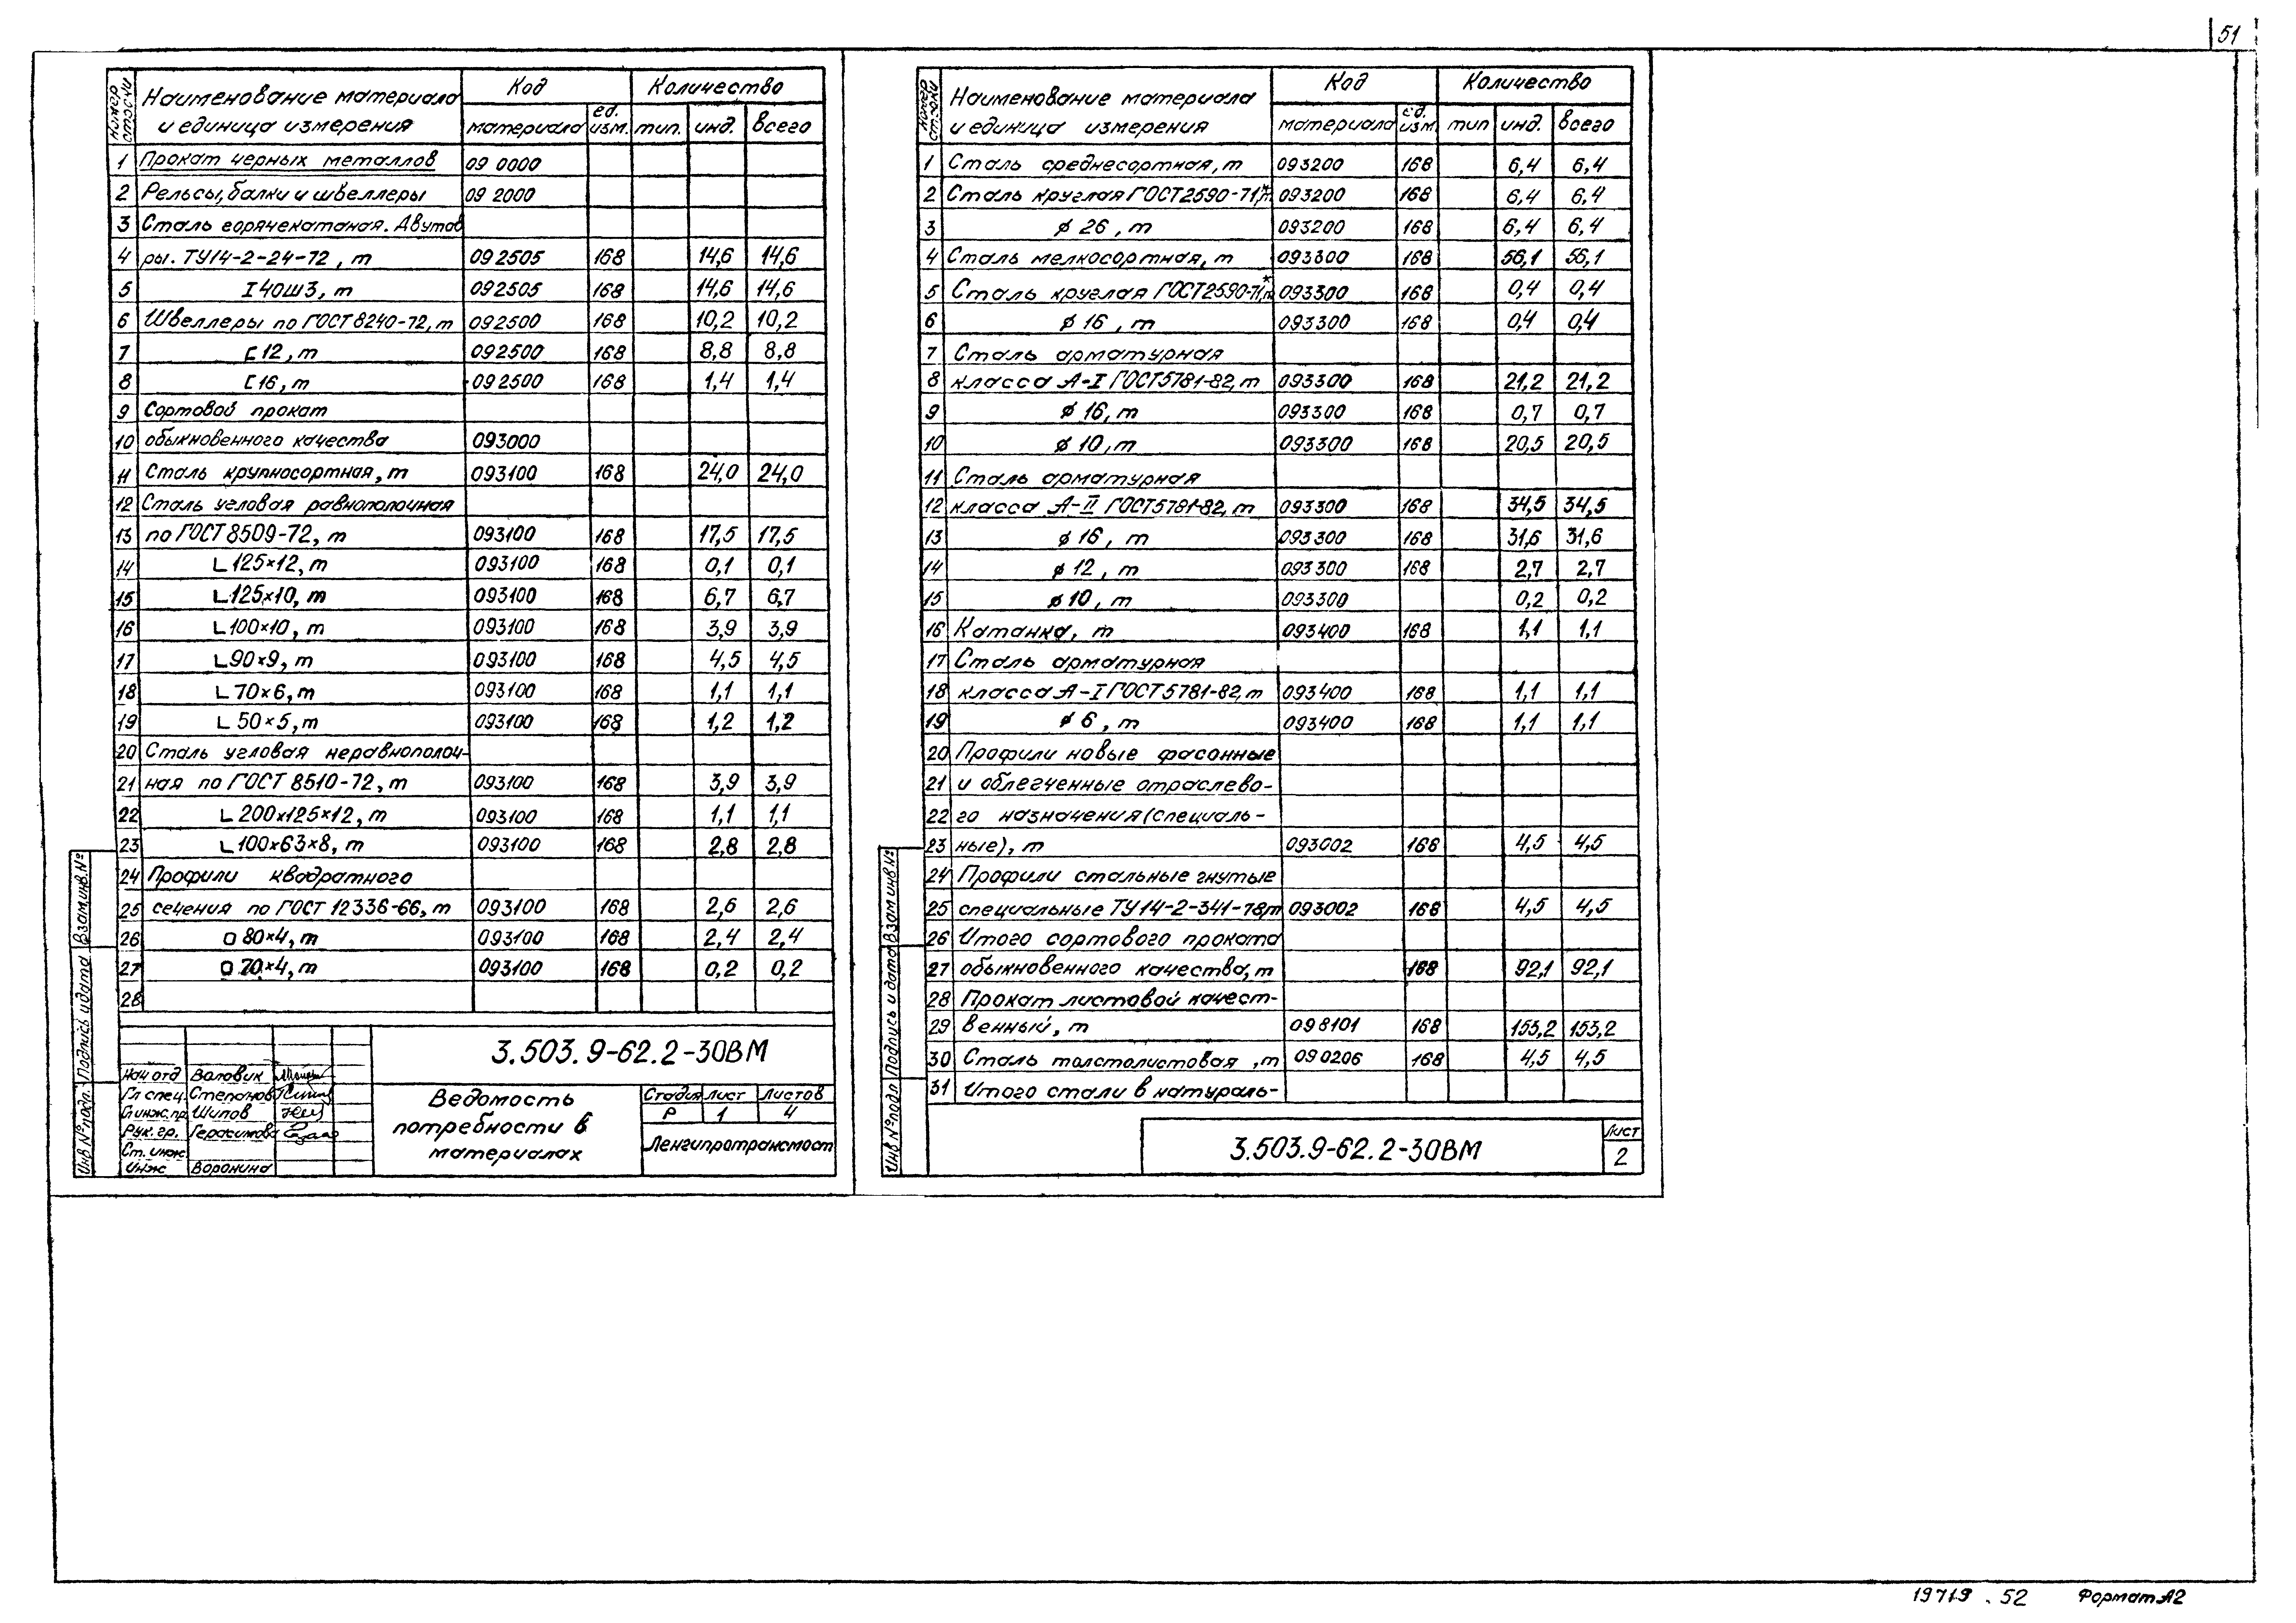 51
Номер строки
Наименование материала и единица измерения
Код
Количество
материала
ед. изм.
тип.
инд.
всего
1 Прокат черных металлов 09 0000
2 Рельсы, балки и швеллеры 09 2000
3 Сталь горячекатаная. Двутав
4 ры. ТУ14-2-24-72, т 092505 168 14,6 14,6
5 I 40Ш3, т 092505 168 14,6 14,6
6 Швеллеры по ГОСТ 8240-72, т 092500 168 10,2 10,2
7 [ 12, т 092500 168 8,8 8,8
8 [ 16, т 092500 168 1,4 1,4
9 Сортовой прокат
10 обыкновенного качества 093000
11 Сталь крупносортная, т 093100 168 24,0 24,0
12 Сталь угловая равнополочная
13 по ГОСТ 8509-72, т 093100 168 17,5 17,5
14 L 125×12, т 093100 168 0,1 0,1
15 L 125×10, т 093100 168 6,7 6,7
16 L 100×10, т 093100 168 3,9 3,9
17 L 90×9, т 093100 168 4,5 4,5
18 L 70×6, т 093100 168 1,1 1,1
19 L 50×5, т 093100 168 1,2 1,2
20 Сталь угловая неравнополоч-
21 ная по ГОСТ 8510-72, т 093100 168 3,9 3,9
22 L 200×125×12, т 093100 168 1,1 1,1
23 L 100×63×8, т 093100 168 2,8 2,8
24 Профили квадратного
25 сечения по ГОСТ 12336-66, т 093100 168 2,6 2,6
26 □ 80×4, т 093100 168 2,4 2,4
27 □ 70×4, т 093100 168 0,2 0,2
28
Инв № подл. Подпись и дата Взам.инв.№
3.503.9-62.2-30ВМ
Нач отд Воловик
Гл спец. Степанов
Гл инж.пр. Шипов
Рук. гр. Герасимова
Ст. инж.
Инж Воронина
Ведомость
потребности в
материалах
Стадия Лист Листов
Р 1 4
Ленгипротрансмост
Номер строки
Наименование материала и единица измерения
Код
Количество
материала
ед. изм
тип
инд.
всего
1 Сталь среднесортная, т 093200 168 6,4 6,4
2 Сталь круглая ГОСТ2590-71*, т 093200 168 6,4 6,4
3 ⌀ 26, т 093200 168 6,4 6,4
4 Сталь мелкосортная, т 093300 168 56,1 56,1
5 Сталь круглая ГОСТ2590-71*, т 093300 168 0,4 0,4
6 ⌀ 16, т 093300 168 0,4 0,4
7 Сталь арматурная
8 класса А-I ГОСТ5781-82, т 093300 168 21,2 21,2
9 ⌀ 16, т 093300 168 0,7 0,7
10 ⌀ 10, т 093300 168 20,5 20,5
11 Сталь арматурная
12 класса А-II ГОСТ5781-82, т 093300 168 34,5 34,5
13 ⌀ 16, т 093300 168 31,6 31,6
14 ⌀ 12, т 093300 168 2,7 2,7
15 ⌀ 10, т 093300 0,2 0,2
16 Катанка, т 093400 168 1,1 1,1
17 Сталь арматурная
18 класса А-I ГОСТ 5781-82, т 093400 168 1,1 1,1
19 ⌀ 6, т 093400 168 1,1 1,1
20 Профили новые фасонные
21 и облегченные отраслево-
22 го назначения (специаль-
23 ные), т 093002 168 4,5 4,5
24 Профили стальные гнутые
25 специальные ТУ14-2-341-78, т 093002 168 4,5 4,5
26 Итого сортового проката
27 обыкновенного качества, т 168 92,1 92,1
28 Прокат листовой качест-
29 венный, т 098101 168 153,2 153,2
30 Сталь толстолистовая, т 090206 168 4,5 4,5
31 Итого стали в натураль-
Инв № подл Подпись и дата Взам инв.№
3.503.9-62.2-30ВМ
Лист
2
19719 . 52 Формат А2